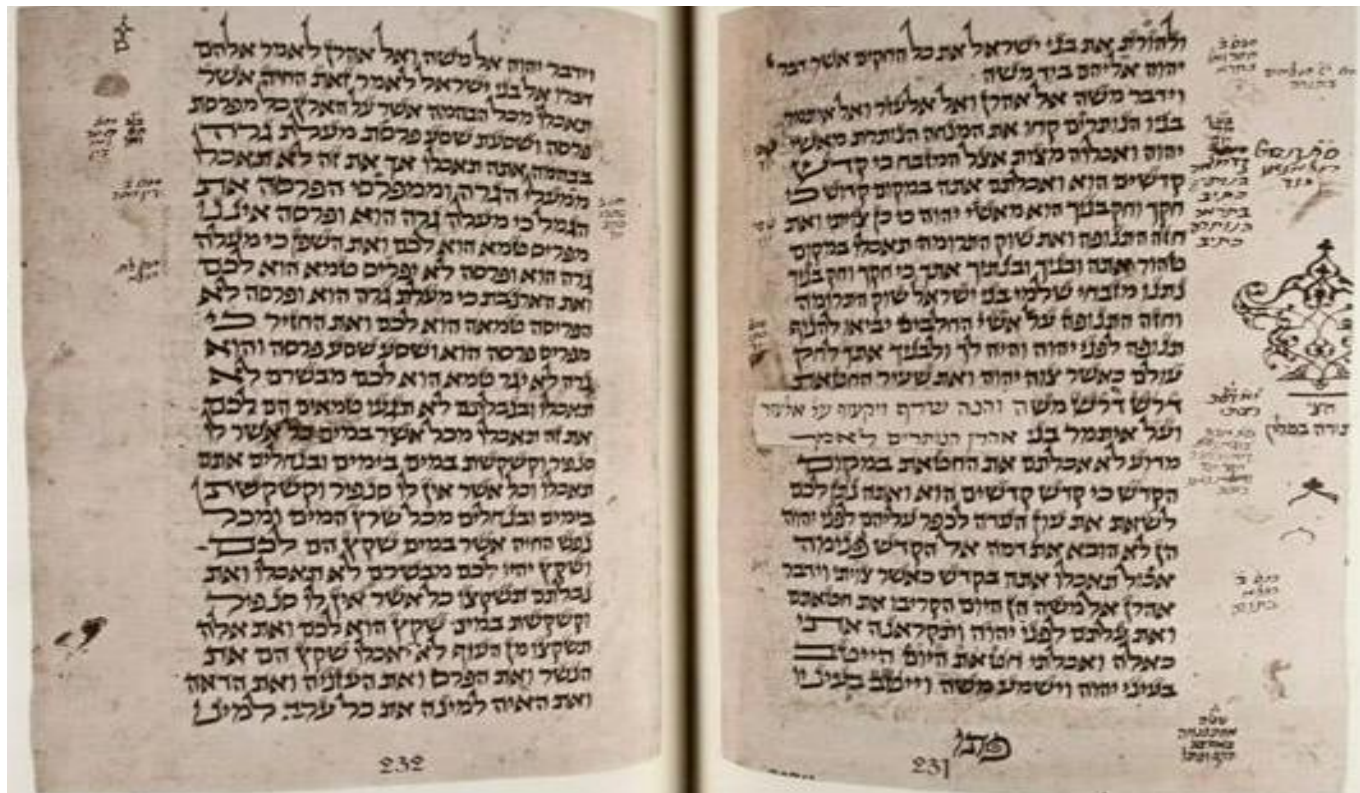 ולהורת את בני ישראל את כל החקים אשר דבר
יהוה אליהם ביד משה
וידבר משה אל אהרן ואל אלעזר ואל איתמר
בניו הנותרים קחו את המנחה הנותרת מאשי
יהוה ואכלוה מצות אצל המזבח כי קדש
קדשים הוא ואכלתם אתה במקום קדוש כי
חקך וחק בניך הוא מאשי יהוה כי כן צויתי ואת
חזה התנופה ואת שוק התרומה תאכלו במקום
טהור אתה ובניך ובנתיך אתך כי חקך וחק בניך
נתנו מזבחי שלמי בני ישראל שוק התרומה
וחזה התנופה על אשי החלבים יביאו להניף
תנופה לפני יהוה והיה לך ולבניך אתך לחק
עולם כאשר צוה יהוה ואת שעיר החטאת
דרש דרש משה והנה שורף ויקצוף על אלעזר
ועל איתמר בני אהרן הנותרים לאמר
מדוע לא אכלתם את החטאת במקום
הקדש כי קדש קדשים הוא ואתה נתן לכם
לשאת את עון העדה לכפר עליהם לפני יהוה
הן לא הובא את דמה אל הקדש פנימה
אכול תאכלו אתה בקדש כאשר צויתי וידבר
אהרן אל משה הן היום הקריבו את חטאתם
ואת עלתם לפני יהוה ותקראנה אתי
כאלה ואכלתי חטאת היום הייטב
בעיני יהוה וישמע משה וייטב בעיניו
231
וידבר יהוה אל משה ואל אהרן לאמר אלהם
דברו אל בני ישראל לאמר זאת החיה אשר
תאכלו מכל הבהמה אשר על הארץ כל מפרסת
פרסה ושסעת שסע פרסת מעלת גרה
בבהמה אתה תאכלו אך את זה לא תאכלו
ממעלי הגרה וממפרסי הפרסה את
הגמל כי מעלה גרה הוא ופרסה איננו
מפריס טמא הוא לכם ואת השפן כי מעלה
גרה הוא ופרסה לא יפריס טמא הוא לכם
ואת הארנבת כי מעלת גרה הוא ופרסה לא
הפריסה טמאה הוא לכם ואת החזיר כי
מפריס פרסה הוא ושסע שסע פרסה והוא
גרה לא יגר טמא הוא לכם מבשרם לא
תאכלו ובנבלתם לא תגעו טמאים הם לכם
את זה תאכלו מכל אשר במים כל אשר לו
סנפיר וקשקשת במים בימים ובנחלים אתם
תאכלו וכל אשר אין לו סנפיר וקשקשת
בימים ובנחלים מכל שרץ המים ומכל
נפש החיה אשר במים שקץ הם לכם
ושקץ יהיו לכם מבשרם לא תאכלו ואת
נבלתם תשקצו כל אשר אין לו סנפיר
וקשקשת במים שקץ הוא לכם ואת אלה
תשקצו מן העוף לא יאכלו שקץ הם את
הנשר ואת הפרס ואת העזניה ואת הדאה
ואת האיה למינה את כל ערב למינו
232